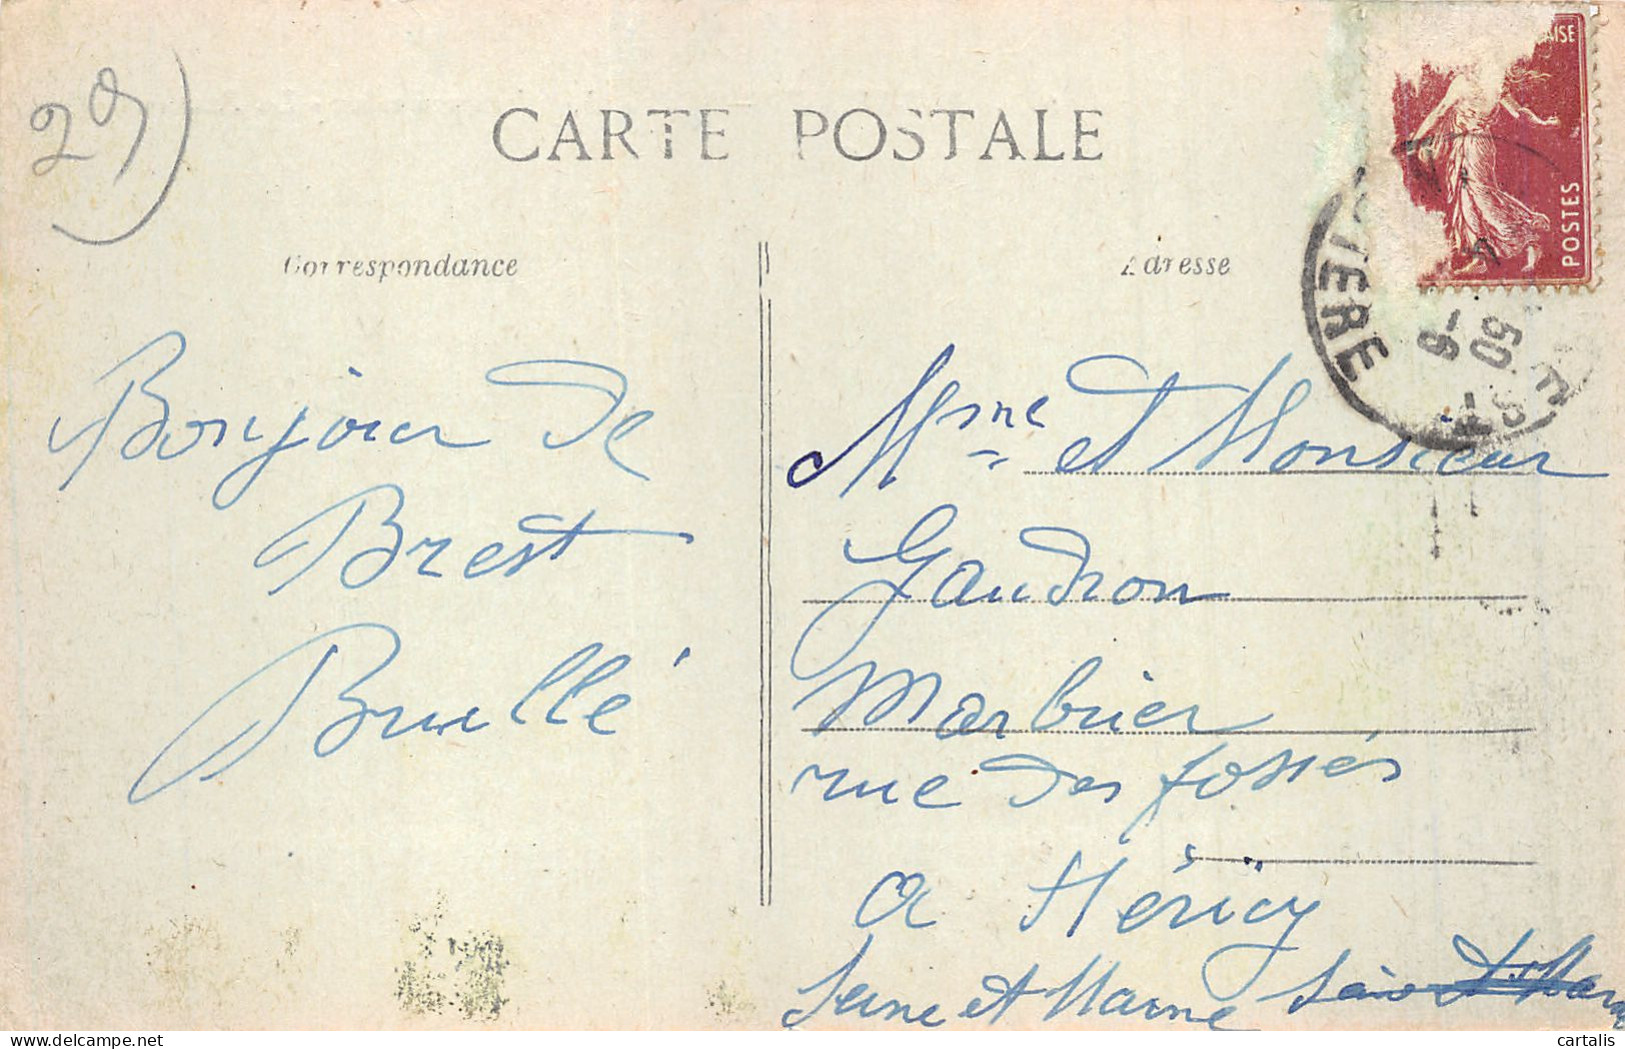 29
CARTE POSTALE
Correspondance
Adresse
AISE
POSTES
Bonjour de
Brest
Brullé
Mme et Monsieur
Gaudron
Marbrier
rue des fossés
a Héricy
Seine et Marne
delcampe.net
cartalis